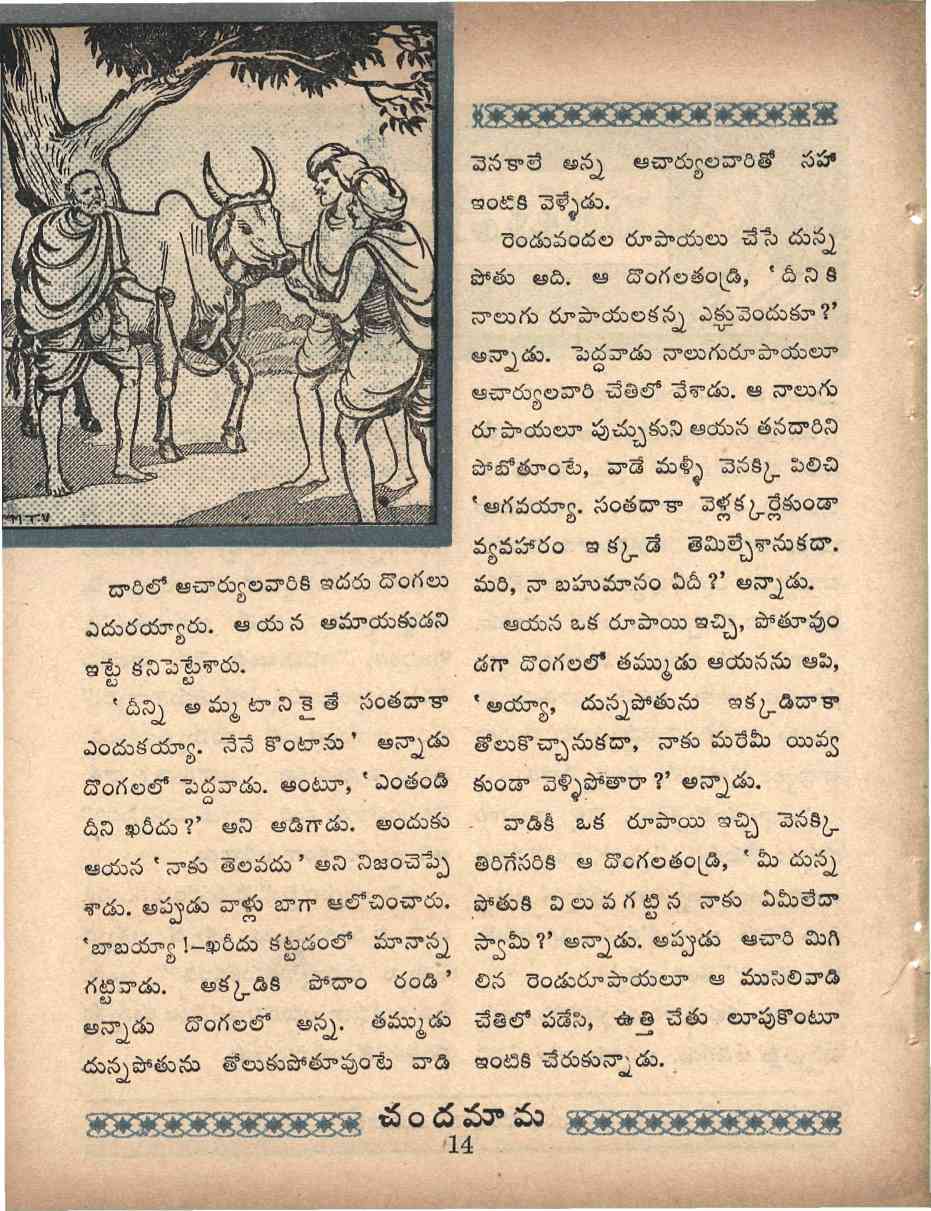 దారిలో ఆచార్యులవారికి ఇదరు దొంగలు
ఎదురయ్యారు. ఆయన అమాయకుడని
ఇట్టే కనిపెట్టేశారు.
‘దీన్ని అమ్మటానికైతే సంతదాకా
ఎందుకయ్యా. నేనే కొంటాను’ అన్నాడు
దొంగలలో పెద్దవాడు. అంటూ, ‘ఎంతండి
దీని ఖరీదు?’ అని అడిగాడు. అందుకు
ఆయన ‘నాకు తెలవదు’ అని నిజంచెప్పే
శాడు. అప్పుడు వాళ్లు బాగా ఆలోచించారు.
‘బాబయ్యా!—ఖరీదు కట్టడంలో మానాన్న
గట్టివాడు. అక్కడికి పోదాం రండి’
అన్నాడు దొంగలలో అన్న. తమ్ముడు
దున్నపోతును తోలుకుపోతూవుంటే వాడి
వెనకాలే అన్న ఆచార్యులవారితో సహా
ఇంటికి వెళ్ళేడు.
రెండువందల రూపాయలు చేసే దున్న
పోతు అది. ఆ దొంగలతండ్రి, ‘దీనికి
నాలుగు రూపాయలకన్న ఎక్కువెందుకూ?’
అన్నాడు. పెద్దవాడు నాలుగురూపాయలూ
ఆచార్యులవారి చేతిలో వేశాడు. ఆ నాలుగు
రూపాయలూ పుచ్చుకుని ఆయన తనదారిని
పోబోతూంటే, వాడే మళ్ళీ వెనక్కి పిలిచి
‘ఆగవయ్యా. సంతదాకా వెళ్లక్కర్లేకుండా
వ్యవహారం ఇక్కడే తెమిల్చేశానుకదా.
మరి, నా బహుమానం ఏదీ?’ అన్నాడు.
ఆయన ఒక రూపాయి ఇచ్చి, పోతూవుం
డగా దొంగలలో తమ్ముడు ఆయనను ఆపి,
‘అయ్యా, దున్నపోతును ఇక్కడిదాకా
తోలుకొచ్చానుకదా, నాకు మరేమీ యివ్వ
కుండా వెళ్ళిపోతారా?’ అన్నాడు.
వాడికీ ఒక రూపాయి ఇచ్చి వెనక్కి
తిరిగేసరికి ఆ దొంగలతండ్రి, ‘మీ దున్న
పోతుకి విలువగట్టిన నాకు ఏమీలేదా
స్వామీ?’ అన్నాడు. అప్పుడు ఆచారి మిగి
లిన రెండురూపాయలూ ఆ ముసిలివాడి
చేతిలో పడేసి, ఉత్తి చేతు లూపుకొంటూ
ఇంటికి చేరుకున్నాడు.
చందమామ
14
M.T.V